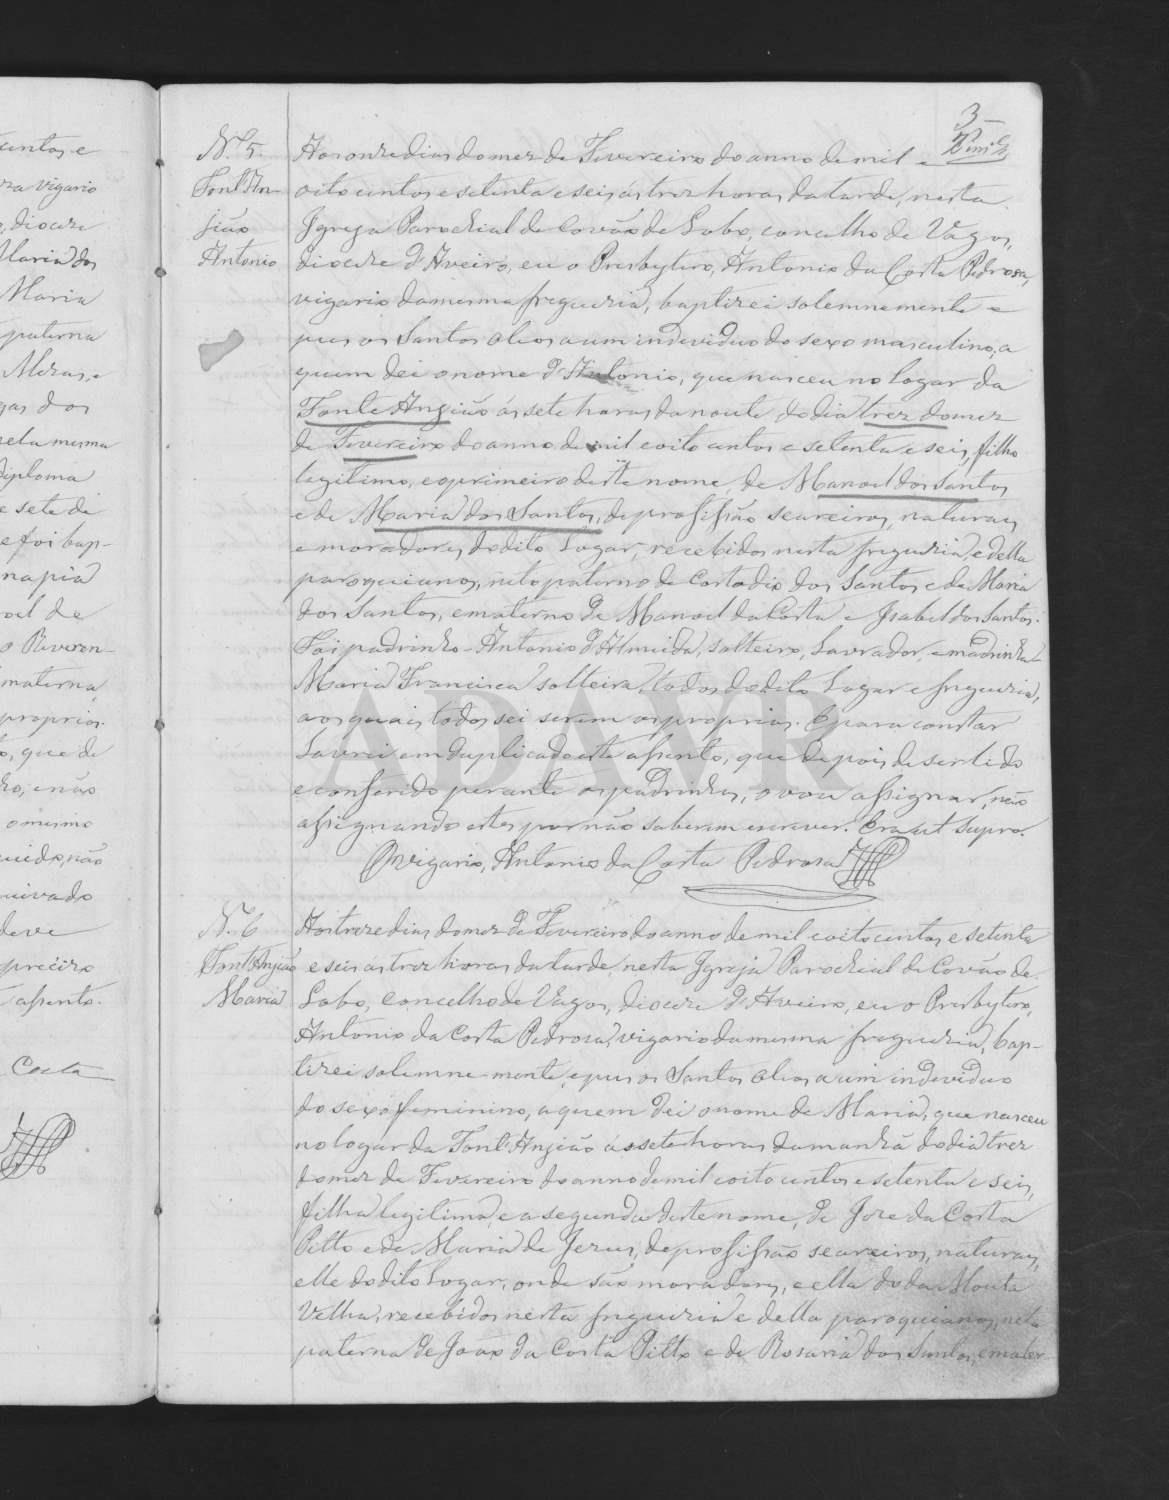 3
N.º 5.
Font'An-
jião
Antonio
Aos onze dias do mez de Fevereiro do anno de mil e
oito centos e setenta e seis ás trez horas da tarde, nesta
Igreja Parochial de Covão de Lobo, concelho de Vagos,
diocese d'Aveiro, eu o Presbytero, Antonio da Costa Pedrosa,
vigario da mesma freguezia, baptizei solemnemente e
puz os Santos oleos a um individuo do sexo masculino, a
quem dei o nome d'Antonio, que nasceu no logar da
Fonte Angião ás sete horas da noute do dia trez do mez
de Fevereiro do anno de mil e oito centos e setenta e seis, filho
legitimo, e o primeiro deste nome, de Manoel dos Santos
e de Maria dos Santos, de profissão seareiros, naturaes
e moradores do dito Logar, recebidos nesta freguezia, e della
paroquianos, neto paterno de Costodio dos Santos e de Maria
dos Santos, e materno de Manoel da Costa e Isabel dos Santos.
Foi padrinho Antonio d'Almeida, solteiro, Lavrador, e madrinha
Maria Francisca solteira, todos do dito Logar e freguezia,
aos quais todos sei serem os proprios. E para constar
Lavrei em duplicado este assento, que depois de ser lido
e conferido perante os padrinhos, o vou assignar, não
assignando estes por não saberem escrever. Era ut supra.
O vigario, Antonio da Costa Pedrosa
N.º 6
Font'Anjião
Maria
Aos treze dias do mez de Fevereiro do anno de mil e oito centos e setenta
e seis ás trez horas da tarde, nesta Igreja Parochial de Covão de
Lobo, Concelho de Vagos, diocese d'Aveiro, eu o Presbytero,
Antonio da Costa Pedrosa, vigario da mesma freguezia, bap-
tizei solemne-mente, e puz os Santos oleos a um individuo
do sexo feminino, a quem dei o nome de Maria, que nasceu
no logar da Font'Anjião ás sete horas da manhã do dia trez
do mez de Fevereiro do anno de mil e oito centos e setenta e seis,
filha legitima, e a segunda deste nome, de Joze da Costa
Pitto e de Maria de Jezus, de profissão seareiros, naturaes,
elle do dito Logar, onde são moradores, e ella do da Mouta
Velha, recebidos nesta freguezia e della paroquianos, neta
paterna de João da Costa Pitto e de Rosaria dos Santos, e mater
untos e
vigario
diocese
Maria dos
Maria
paterna
dos
mesma
diploma
e sete de
e foi bap-
na pia
de
o Reveren-
materna
proprios.
que de
e não
o mesmo
não
deve
assento.
Costa
ADAVR